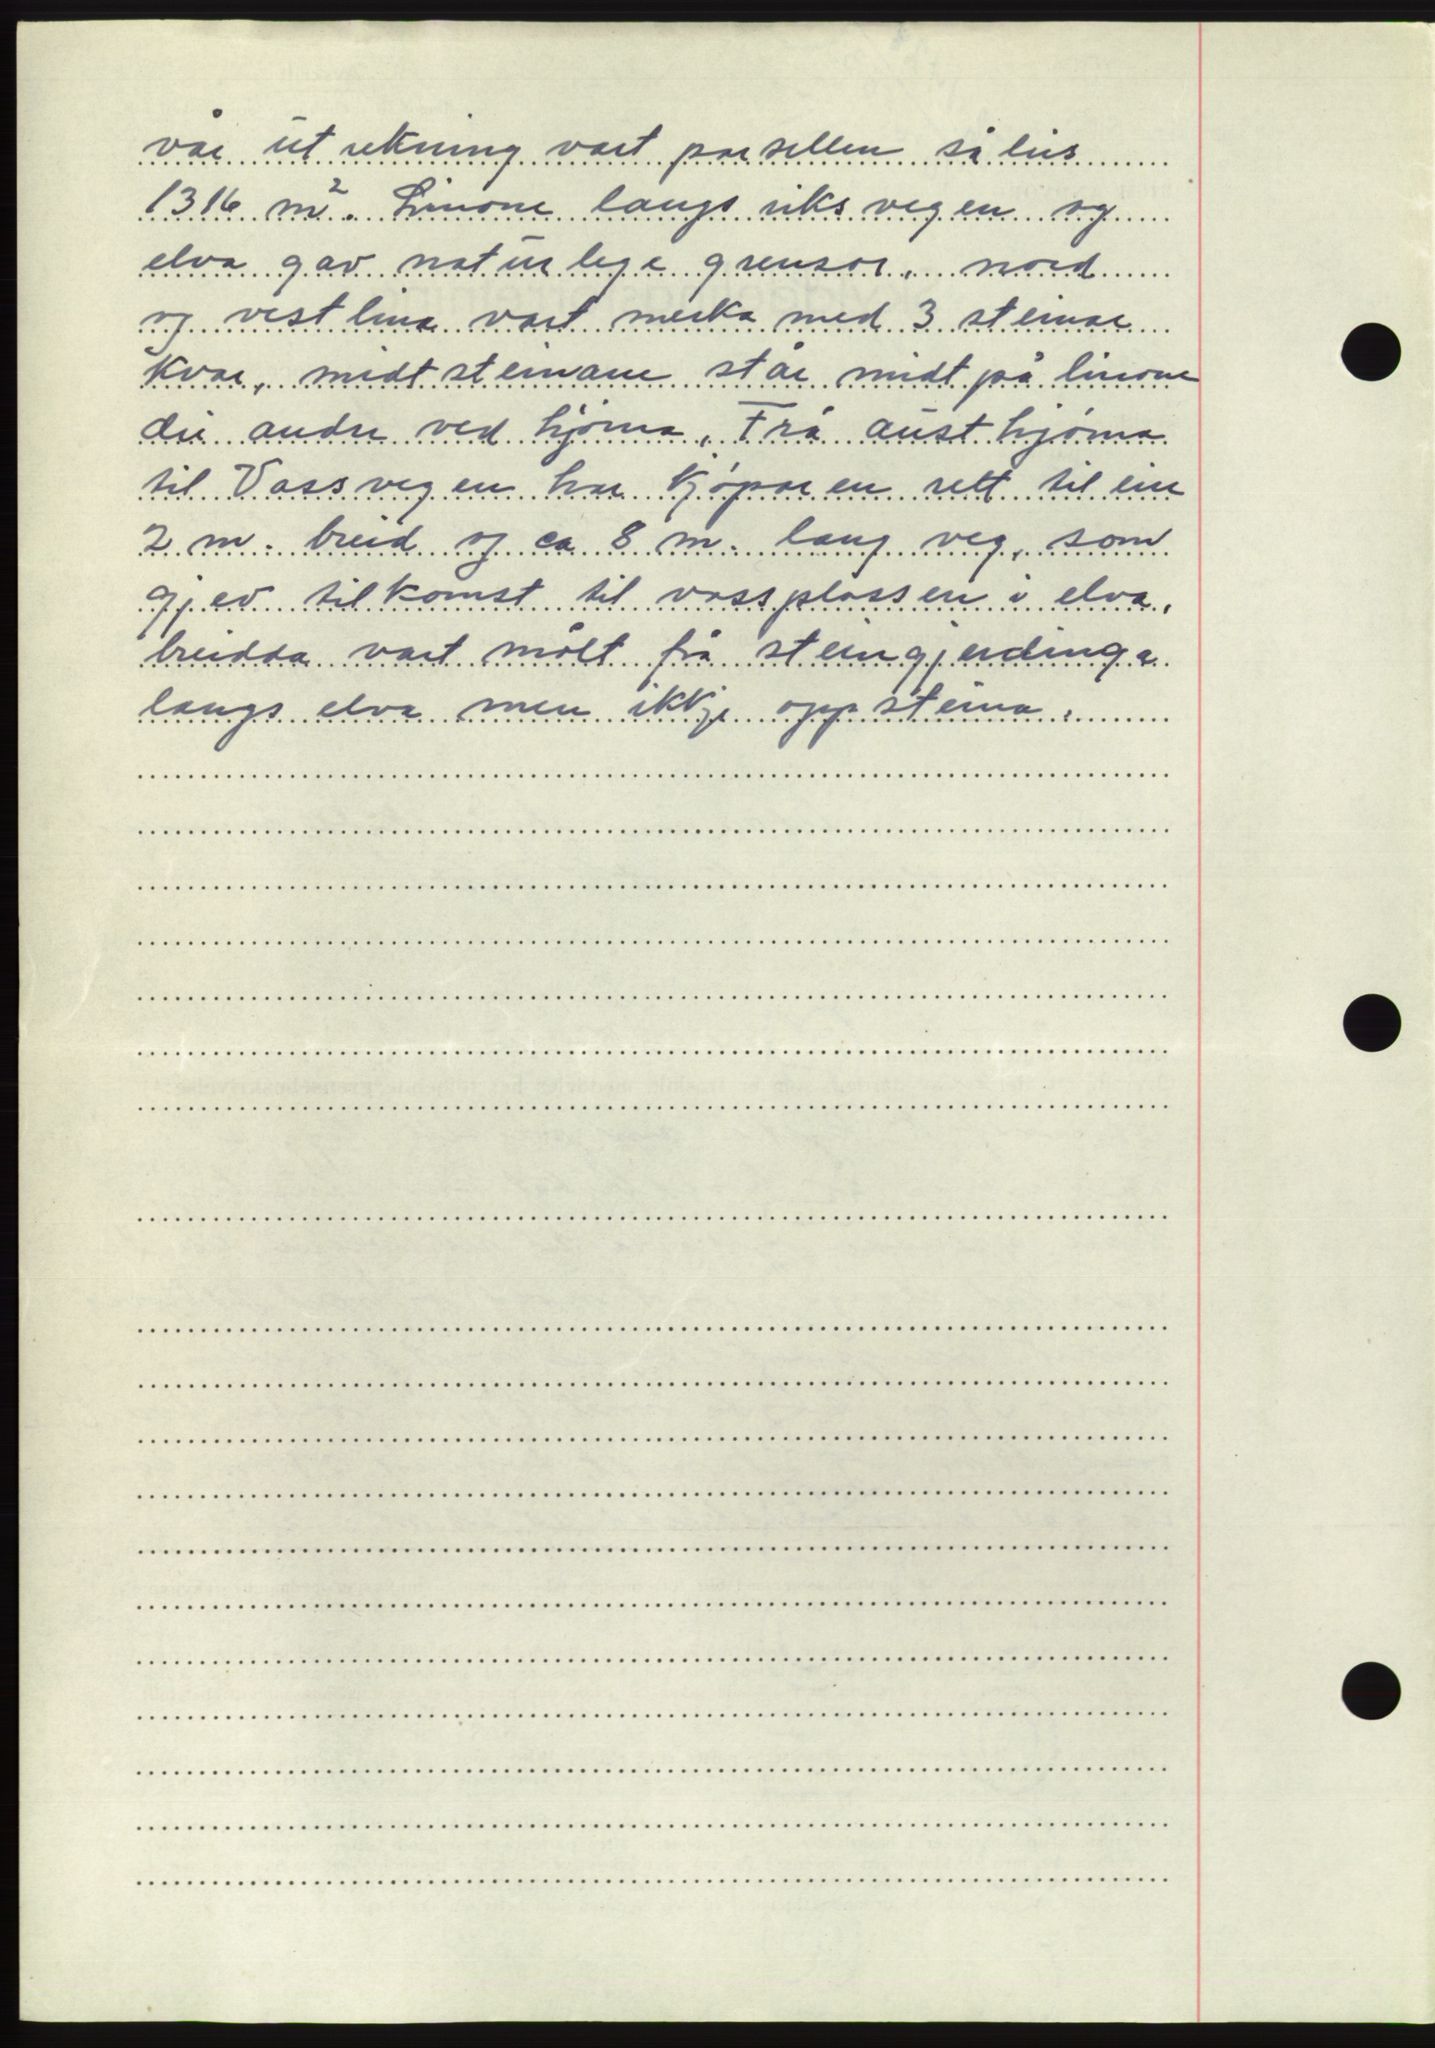 vår utrekning vart parsellen såleis
1316 m². Linone langs riksvegen og
elva gav naturlege grensor, nord
og vestlina vart merka med 3 steinar
kvar, midtsteinane står midt på linone
dei andre ved hjørna. Frå austhjørna
til Vassvegen har kjøparen rett til ein
2 m. breid og ca 8 m. lang veg, som
gjev tilkomst til vassplassen i elva,
breidda vart målt frå steingjerdinga
langs elva men ikkje oppsteina.